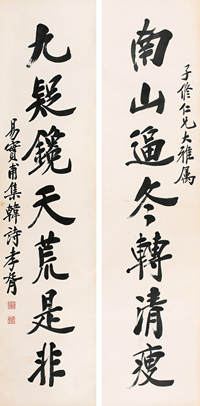 南山逼冬轉清瘦
子修仁兄大雅属
九疑鑱天荒是非
易實甫集韓詩 孝胥